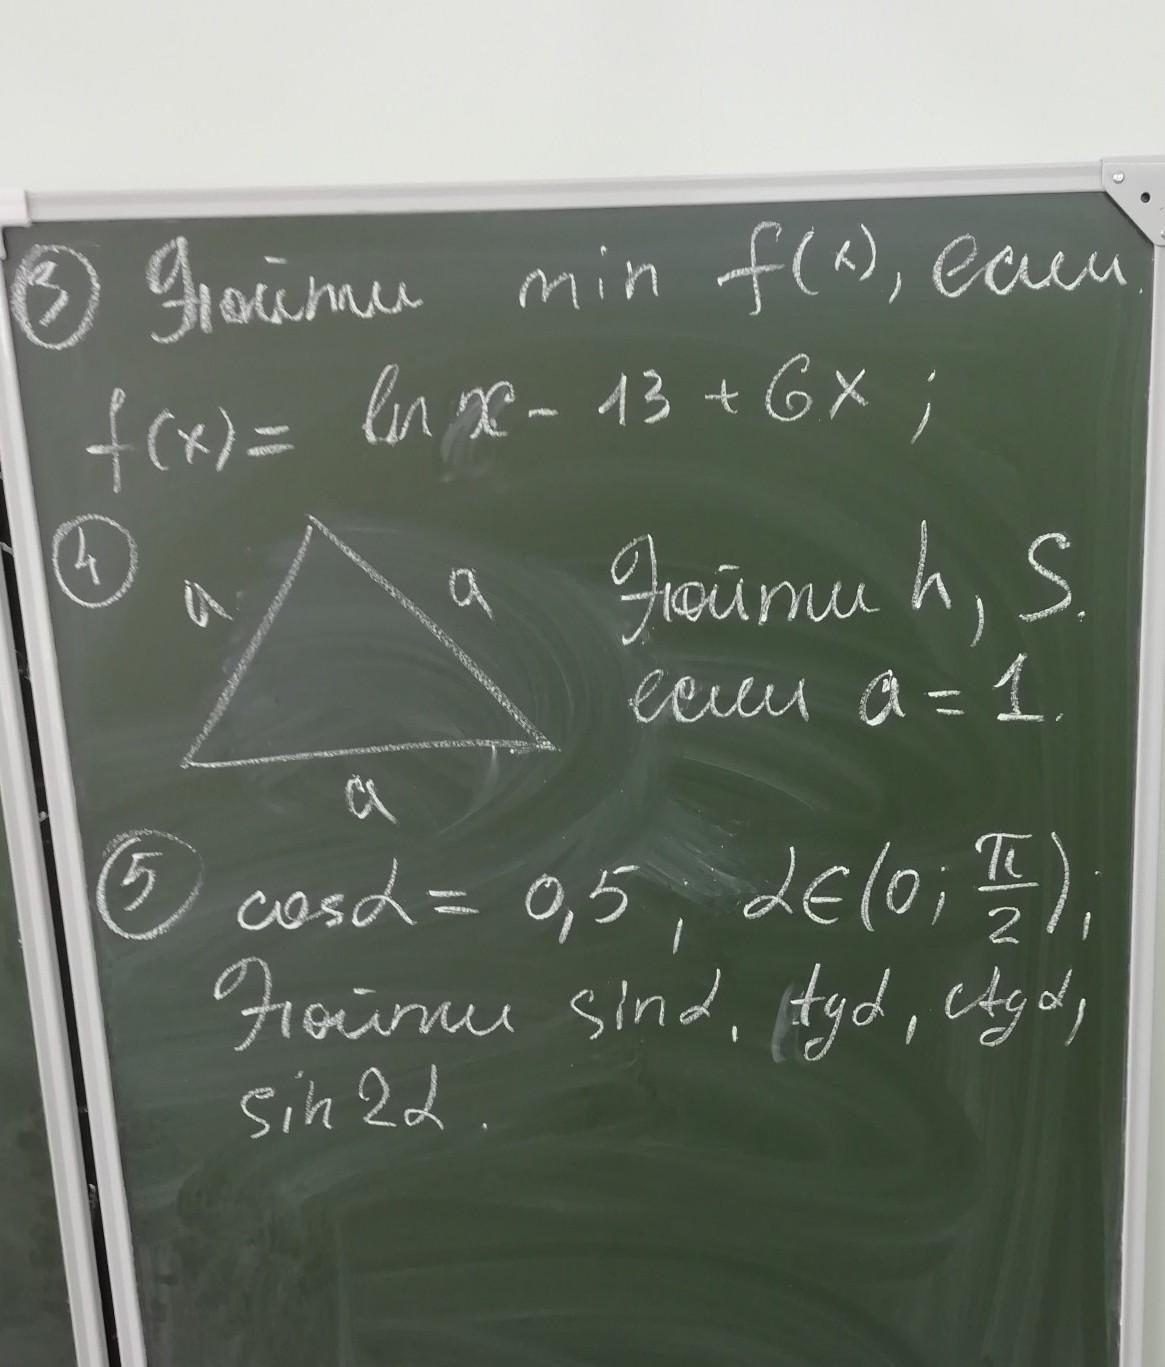 ③ Найти min f(x), если
f(x) = ln x - 13 + 6x ;
④ a a Найти h, S.
если a = 1.
a
⑤ cosα = 0,5 , α∈(0; π/2),
Найти sinα, tgα, ctgα,
sin2α.